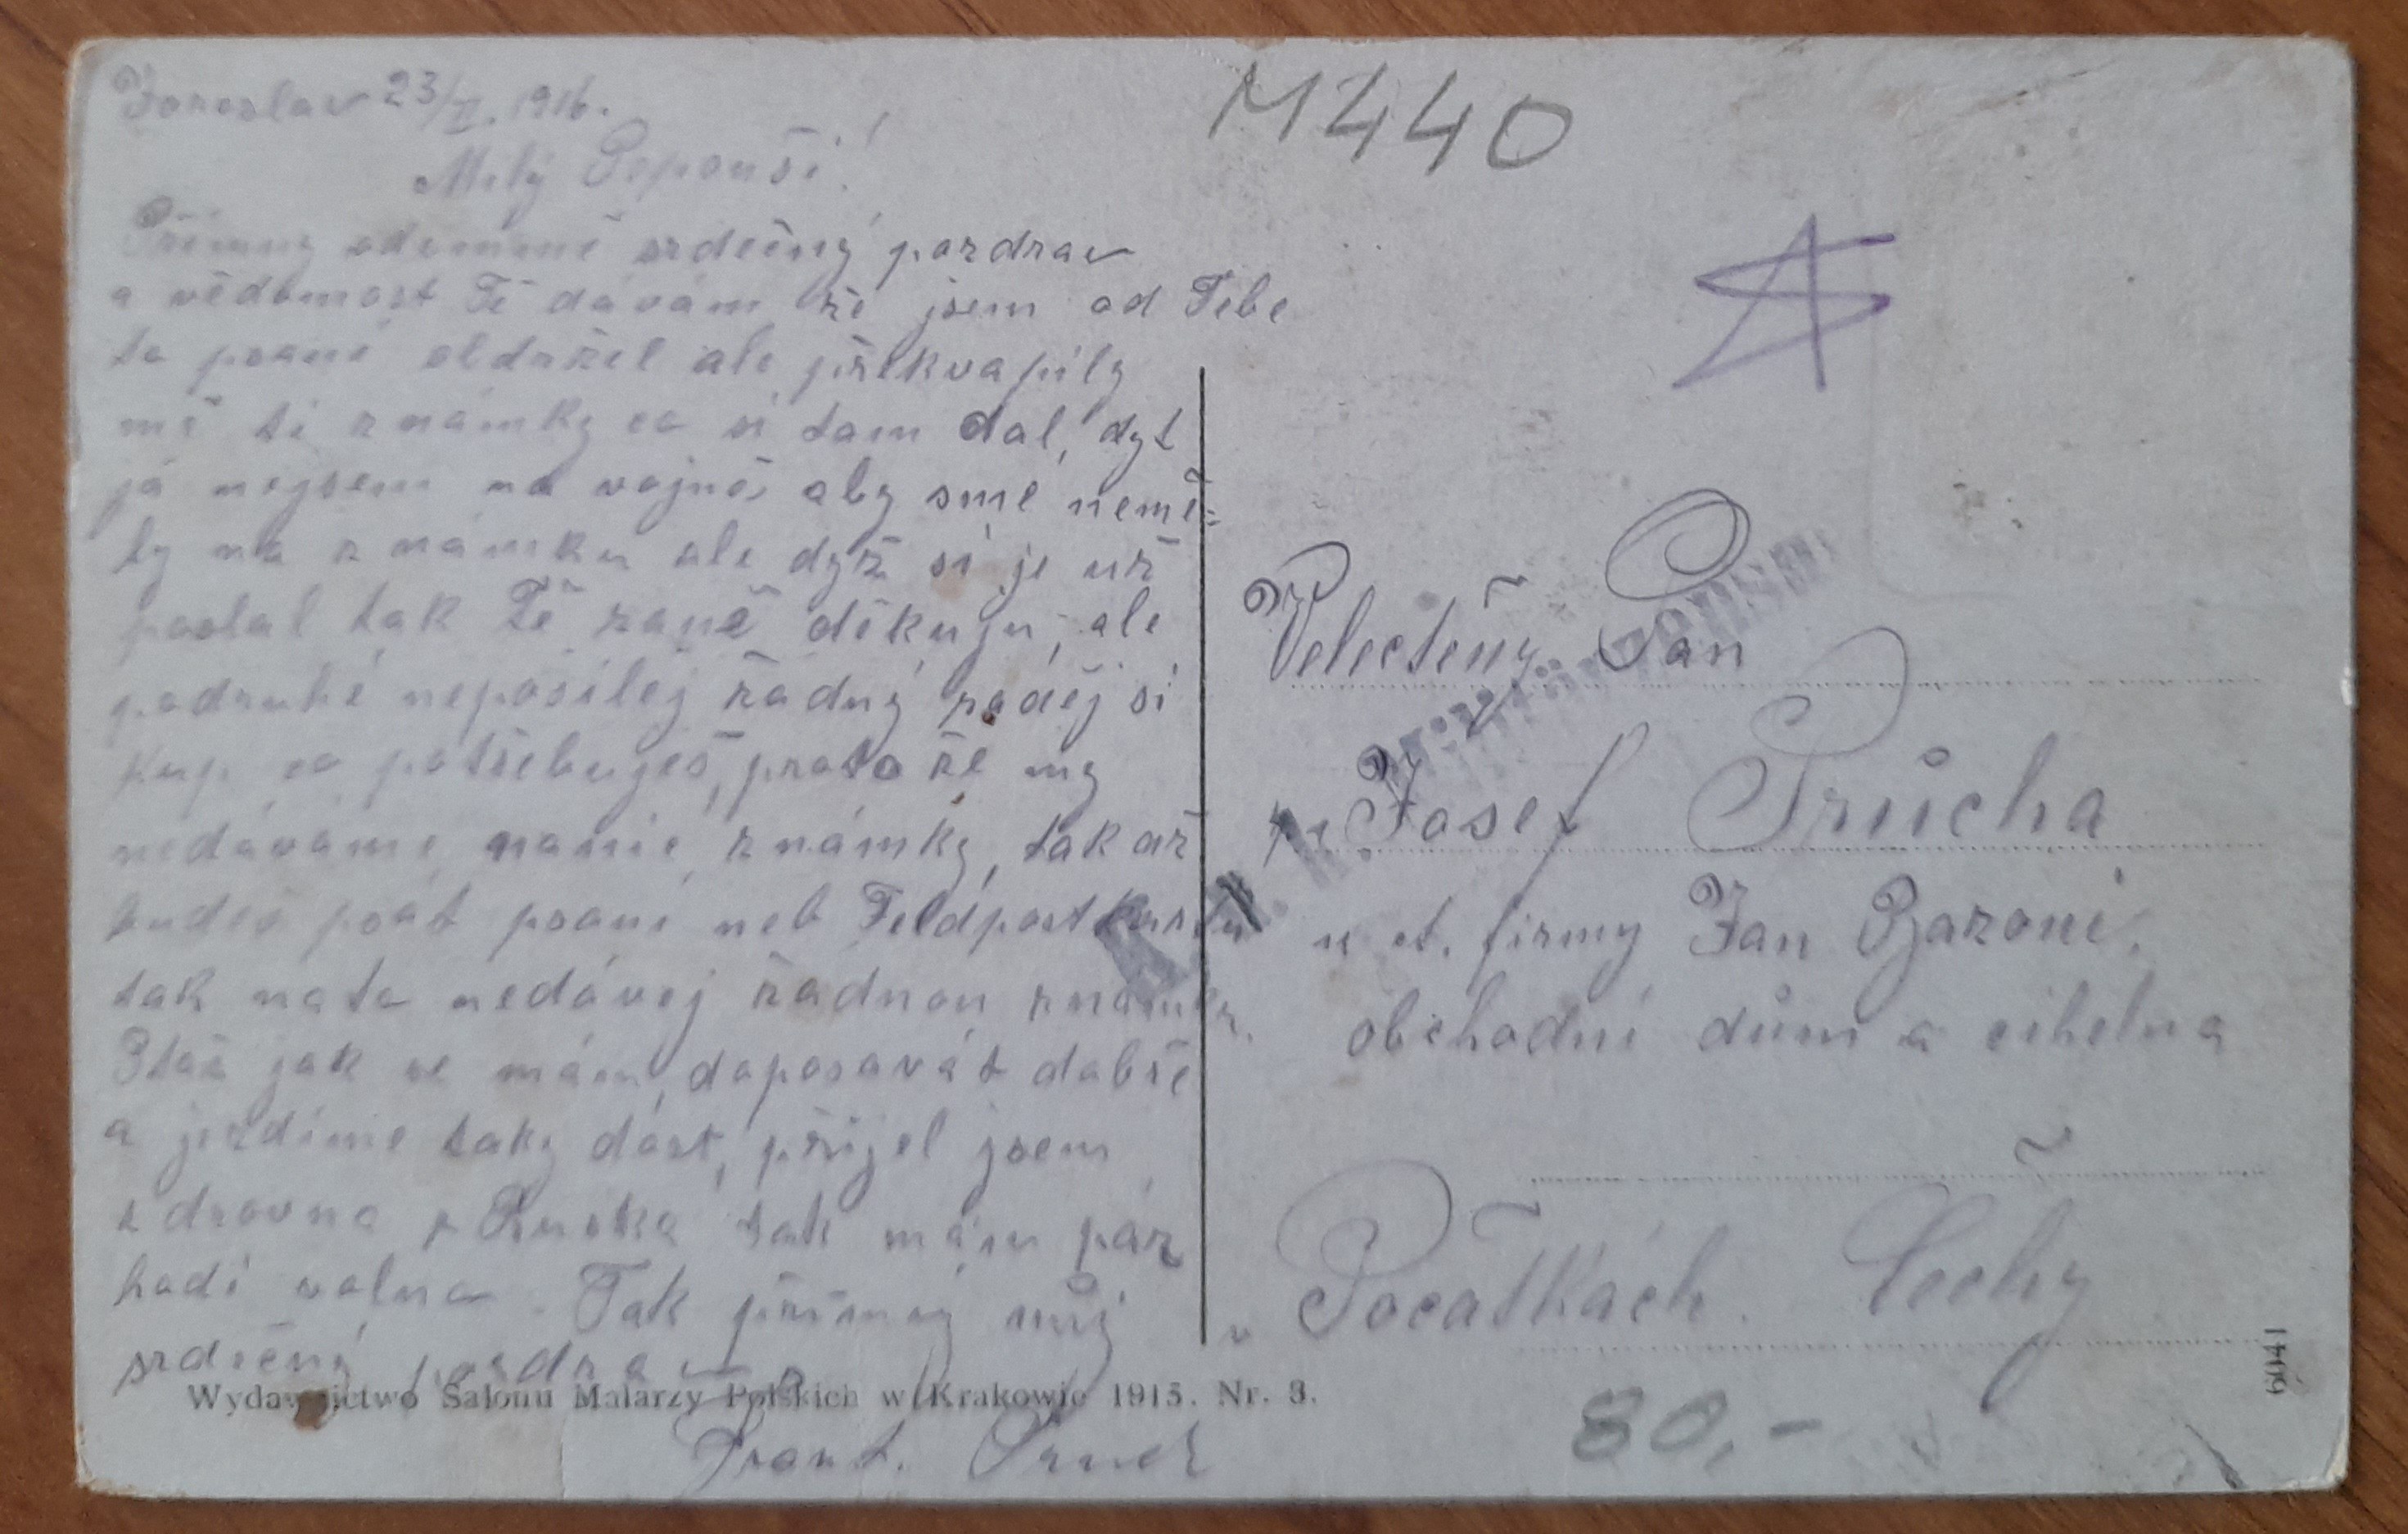 Jaroslav 23/II. 1916.
Milý Pepouši!
Přimny odemně srdečný pozdrav
a vědomost Tě davám že jsem od Tebe
to psaní oldržel ale překvapily
mě ti známky co si tam dal, dyt
já nejsem na vojně aby sme nemě=
ly na známku ale dyž si je už
poslal tak Tě zaně děkuju, ale
podruhé neposílej žádný raděj si
kup co potřebuješ, proto že my
nedáváme nanic známky, tak až
budeš psát psaní neb Feldpostkartu
tak nato nedávej žádnou známku.
Ptáš jak se mám, doposavát dobře
a jezdíme taky dost, přijel jsem
zdrovna z Ruska tak mám pár
hodi volna. Tak přimny můj
srdečný pozdrav
Frant.
Wydawnictwo Salonu Malarzy Polskich w Krakowie 1915. Nr. 3.
M440
Velectěný Pan
Josef Průcha
u ct. firmy Jan
obchodní dům a cihelna
v Počátkách. Čechy
80,-
1469